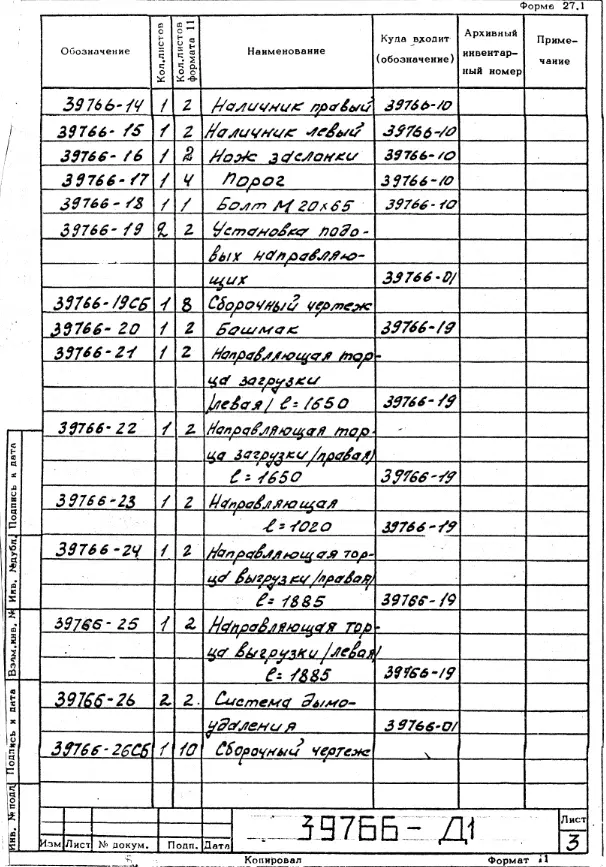 Форма 27.1
Обозначение Кол.листов Кол.листов формата 11 Наименование Куда входит (обозначение) Архивный инвентар- ный номер Приме- чание
39766-14 1 2 Наличник правый 39766-10
39766-15 1 2 Наличник левый 39766-10
39766-16 1 2 Нож заслонки 39766-10
39766-17 1 4 Порог 39766-10
39766-18 1 1 Болт М 20х65 39766-10
39766-19 2 2 Установка подо-
вых направляю-
щих 39766-01
39766-19СБ 1 8 Сборочный чертеж
39766-20 1 2 Башмак 39766-19
39766-21 1 2 Направляющая тор-
ца загрузки
/левая/ ℓ=1650 39766-19
39766-22 1 2 Направляющая тор-
ца загрузки /правая/
ℓ=1650 39766-19
39766-23 1 2 Направляющая
ℓ=1020 39766-19
39766-24 1 2 Направляющая тор-
ца выгрузки /правая/
ℓ=1885 39766-19
39766-25 1 2 Направляющая тор-
ца выгрузки /левая/
ℓ=1885 39766-19
39766-26 2 2 Система дымо-
удаления 39766-01
39766-26СБ 1 10 Сборочный чертеж
Инв. № подл Подпись и дата Взам.инв. № Инв. №дубл. Подпись и дата
39766-Д1
Лист
3
Изм Лист № докум. Подп. Дата
Копировал Формат 11